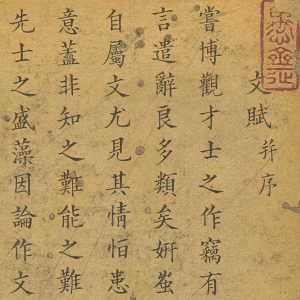 文賦 并序
嘗博觀才士之作竊有
言遣辭良多類矣妍蚩
自屬文尤見其情怕患
意蓋非知之難能之難
先士之盛藻因論作文